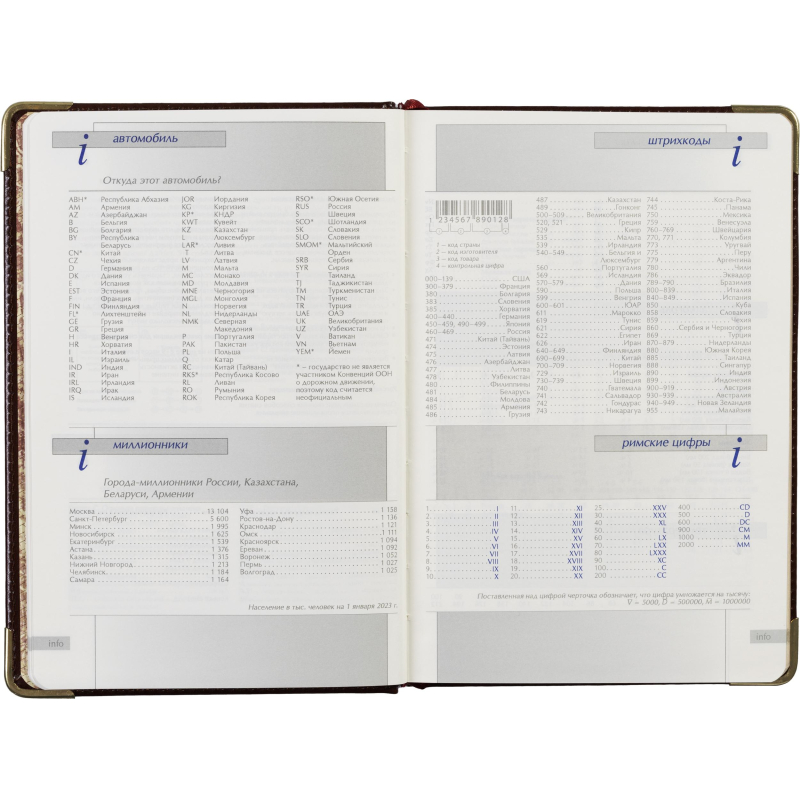 i автомобиль
Откуда этот автомобиль?
ABH* Республика Абхазия
AM Армения
AZ Азербайджан
B Бельгия
BG Болгария
BY Республика
Беларусь
CN* Китай
CZ Чехия
D Германия
DK Дания
E Испания
EST Эстония
F Франция
FIN Финляндия
FL* Лихтенштейн
GE Грузия
GR Греция
H Венгрия
HR Хорватия
I Италия
IL Израиль
IND Индия
IR Иран
IRL Ирландия
IRQ Ирак
IS Исландия
JOR Иордания
KG Киргизия
KP* КНДР
KWT Кувейт
KZ Казахстан
L Люксембург
LAR* Ливия
LT Литва
LV Латвия
M Мальта
MC Монако
MD Молдавия
MNE Черногория
MGL Монголия
N Норвегия
NL Нидерланды
NMK Северная
Македония
P Португалия
PAK Пакистан
PL Польша
Q Катар
RC Китай (Тайвань)
RKS* Республика Косово
RL Ливан
RO Румыния
ROK Республика Корея
RSO* Южная Осетия
RUS Россия
S Швеция
SCO* Шотландия
SK Словакия
SLO Словения
SMOM* Мальтийский
Орден
SRB Сербия
SYR Сирия
T Таиланд
TJ Таджикистан
TM Туркменистан
TN Тунис
TR Турция
UAE ОАЭ
UK Великобритания
UZ Узбекистан
V Ватикан
VN Вьетнам
YEM* Йемен
* – государство не является
участником Конвенции ООН
о дорожном движении,
поэтому код считается
неофициальным
i миллионники
Города-миллионники России, Казахстана,
Беларуси, Армении
Москва 13 104
Санкт-Петербург 5 600
Минск 1 995
Новосибирск 1 625
Екатеринбург 1 539
Астана 1 376
Казань 1 315
Нижний Новгород 1 213
Челябинск 1 184
Самара 1 164
Уфа 1 158
Ростов-на-Дону 1 136
Краснодар 1 121
Омск 1 111
Красноярск 1 094
Ереван 1 092
Воронеж 1 052
Пермь 1 027
Волгоград 1 025
Население в тыс. человек на 1 января 2023 г.
info
штрихкоды i
1 234567 890128
1 – код страны
2 – код изготовителя
3 – код товара
4 – контрольная цифра
000–139 США
300–379 Франция
380 Болгария
383 Словения
385 Хорватия
400–440 Германия
450–459, 490–499 Япония
460–469 Россия
471 Китай (Тайвань)
474 Эстония
475 Латвия
476 Азербайджан
477 Литва
478 Узбекистан
480 Филиппины
481 Беларусь
484 Молдова
485 Армения
486 Грузия
487 Казахстан
489 Гонконг
500–509 Великобритания
520, 521 Греция
529 Кипр
535 Мальта
539 Ирландия
540–549 Бельгия и
Люксембург
560 Португалия
569 Исландия
570–579 Дания
590 Польша
599 Венгрия
600–601 ЮАР
611 Марокко
619 Тунис
621 Сирия
622 Египет
626 Иран
640–649 Финляндия
690–699 Китай
700–709 Норвегия
729 Израиль
730–739 Швеция
740 Гватемала
741 Сальвадор
742 Гондурас
743 Никарагуа
744 Коста-Рика
745 Панама
750 Мексика
759 Венесуэла
760–769 Швейцария
770, 771 Колумбия
773 Уругвай
775 Перу
779 Аргентина
780 Чили
786 Эквадор
789–790 Бразилия
800–839 Италия
840–849 Испания
850 Куба
858 Словакия
859 Чехия
860 Сербия и Черногория
869 Турция
870–879 Нидерланды
880 Южная Корея
885 Таиланд
888 Сингапур
890 Индия
899 Индонезия
900–919 Австрия
930–939 Австралия
940–949 Новая Зеландия
955 Малайзия
римские цифры i
1 I
2 II
3 III
4 IV
5 V
6 VI
7 VII
8 VIII
9 IX
10 X
11 XI
12 XII
13 XIII
14 XIV
15 XV
16 XVI
17 XVII
18 XVIII
19 XIX
20 XX
25 XXV
30 XXX
40 XL
50 L
60 LX
70 LXX
80 LXXX
90 XC
100 C
200 CC
400 CD
500 D
600 DC
900 CM
1000 M
2000 MM
Поставленная над цифрой черточка обозначает, что цифра умножается на тысячу:
V̅ = 5000, D̅ = 500000, M̅ = 1000000
info